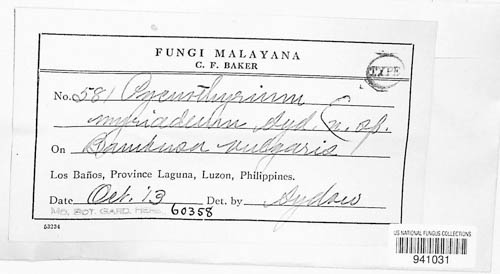 FUNGI MALAYANA
C. F. BAKER
TYPE
No. 581 Pycnothyrium
myriadeum Syd. (n. sp.
On Bambusa vulgaris
Los Baños, Province Laguna, Luzon, Philippines.
Date Oct. '13 Det. by Sydow
MO. BOT. GARD. HERB. 60358
53234
US NATIONAL FUNGUS COLLECTIONS
941031